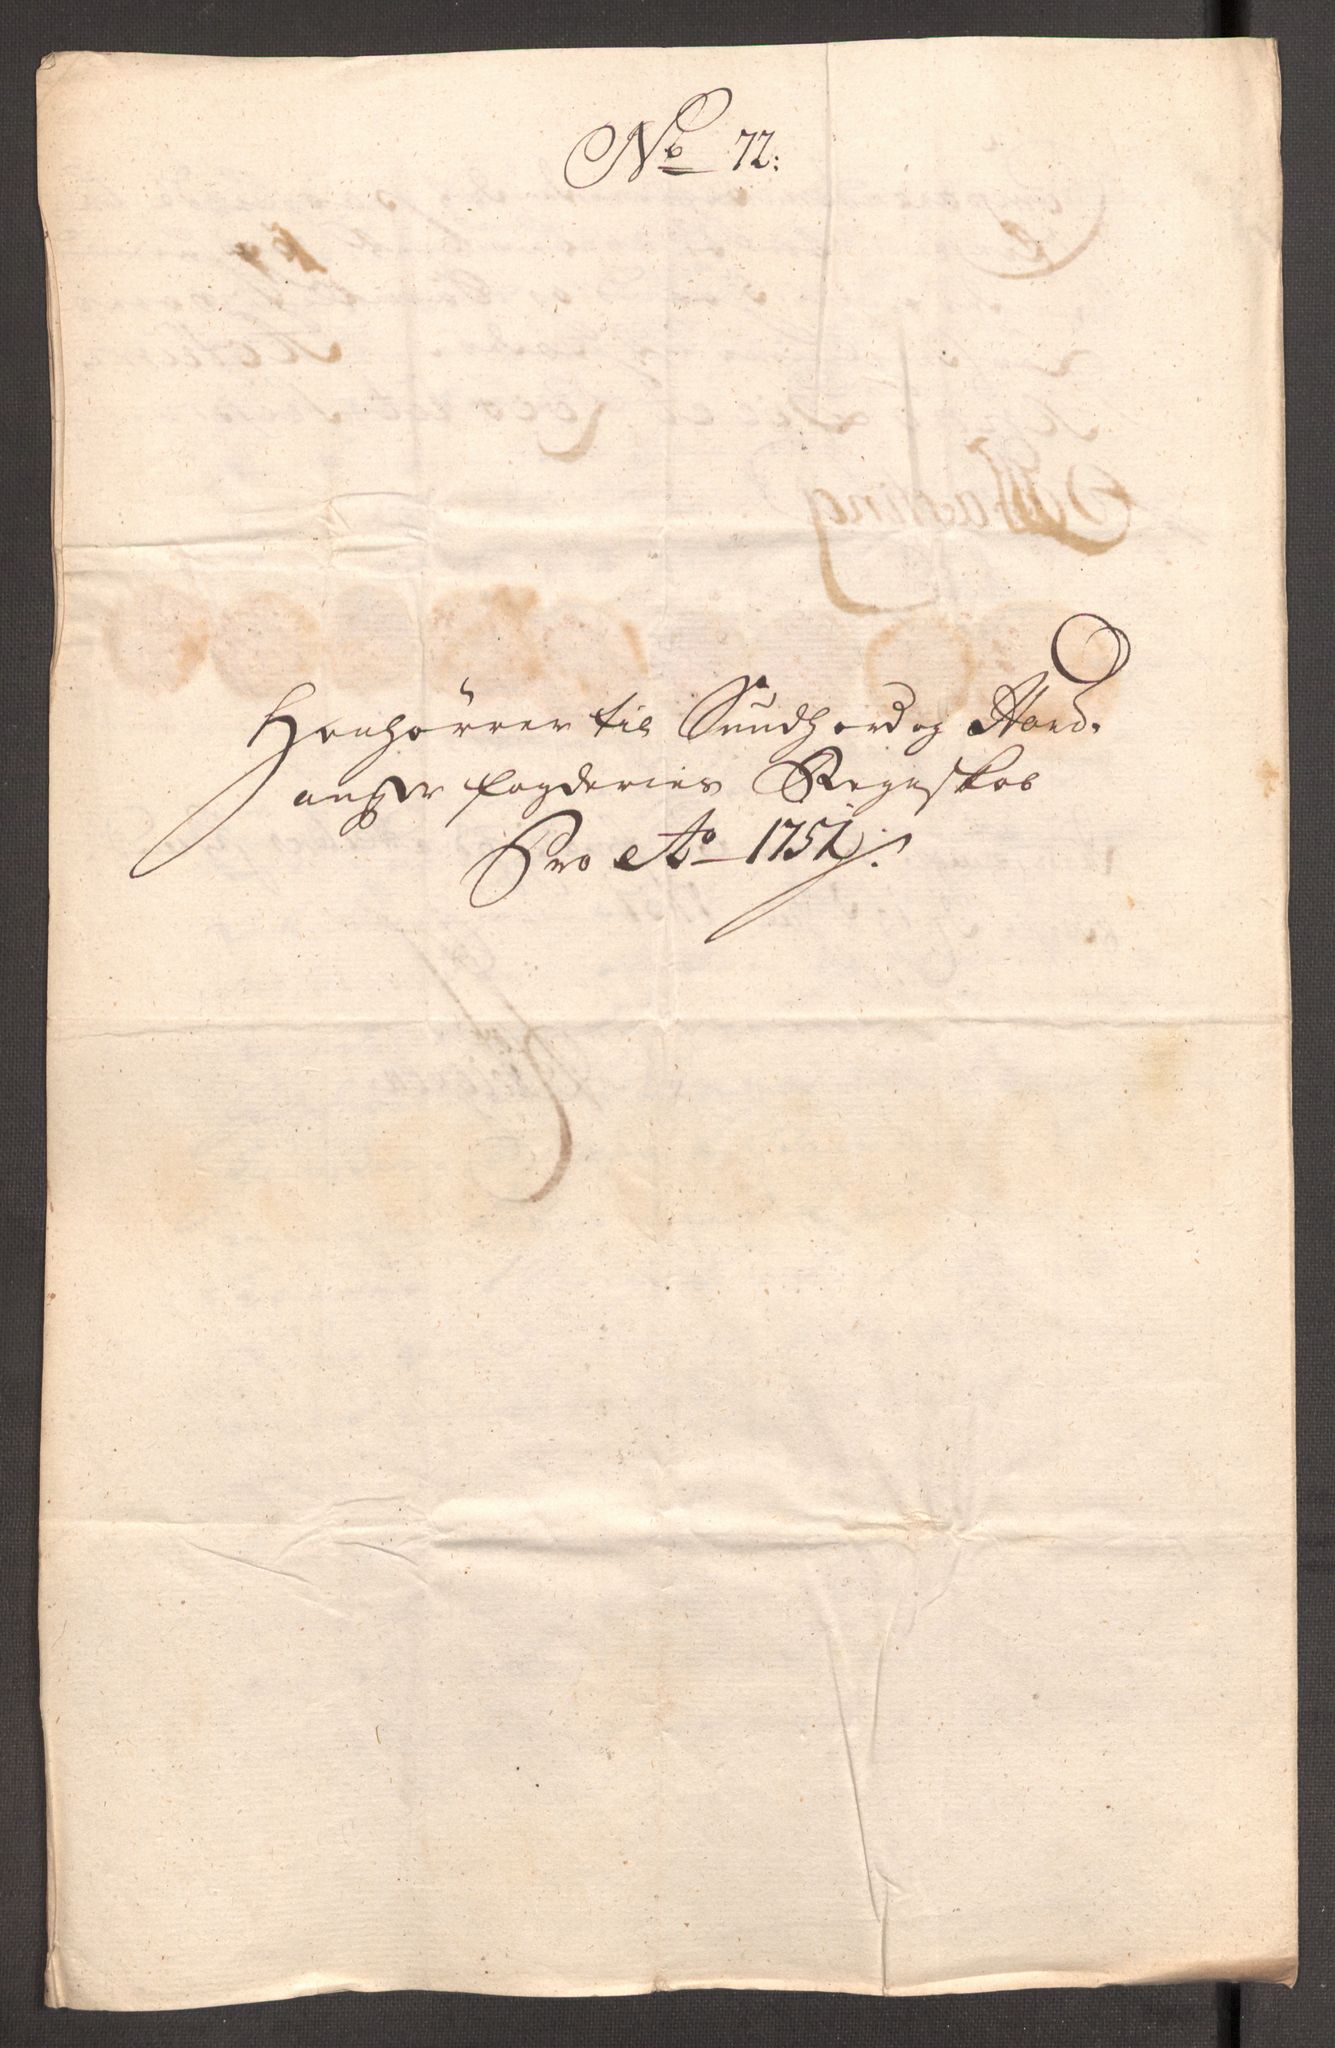 No 72:
Henhörrer til Sundhord og Hard-
anger fogderies Regnskab
Pro Ao 1751.